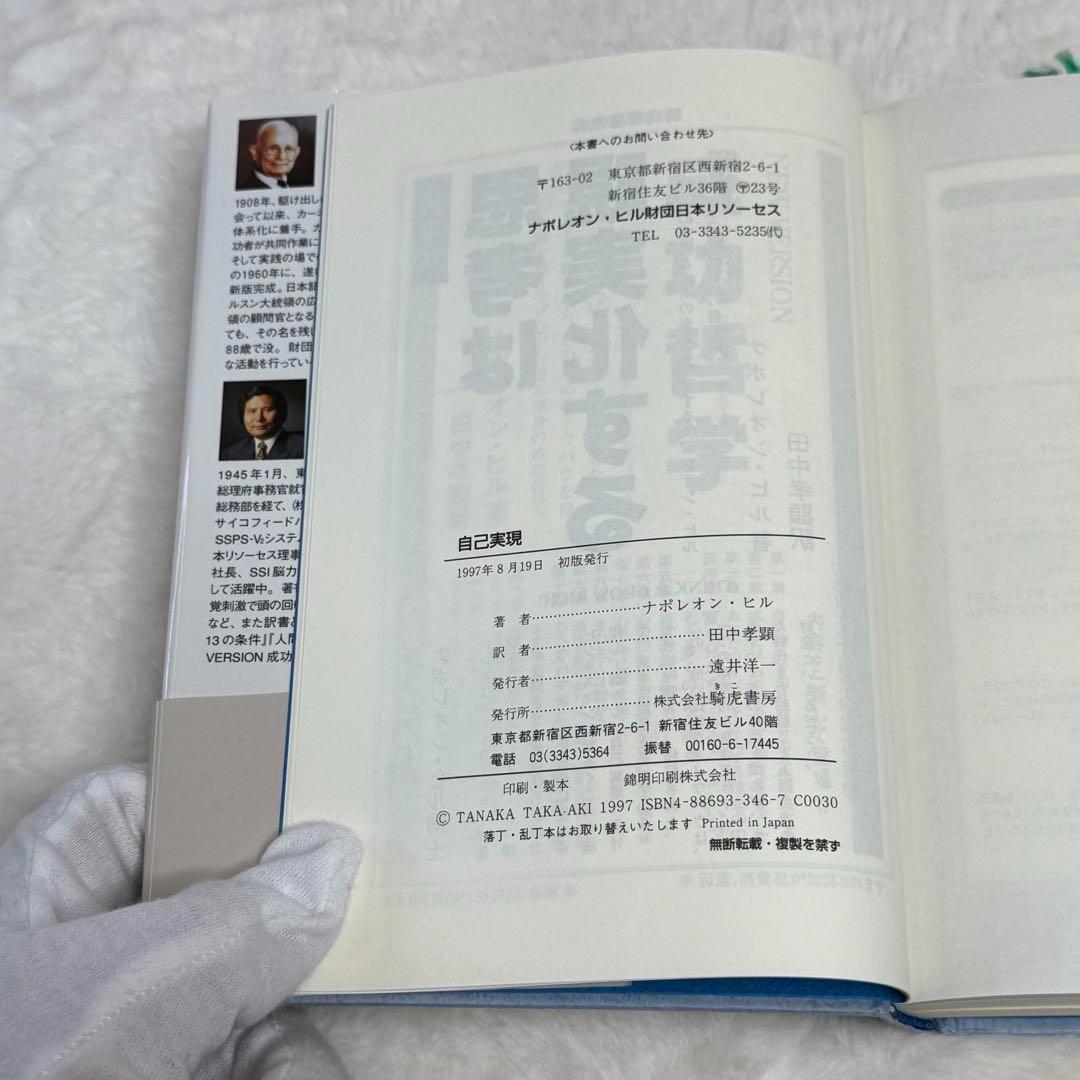 1908年、駆け出し
会って以来、カー
体系化に着手。
功者が共同作業に
そして実践の場で
の1960年に、遂
新版完成。日本
ルスン大統領の広
領の顧問官となる
ても、その名を残
88歳で没。財団
な活動を行ってい
1945年1月、東
総理府事務官就
総務部を経て、㈱
サイコフィード
SSPS-V₂システム
本リソーセス理事
社長、SSI脳力
して活躍中。著
覚刺激で頭の回
など、また訳書
13の条件』『人間
VERSION 成功
〈本書へのお問い合わせ先〉
〒163-02 東京都新宿区西新宿2-6-1
新宿住友ビル36階 〶23号
ナポレオン・ヒル財団日本リソーセス
TEL 03-3343-5235㈹
自己実現
1997年8月19日 初版発行
著 者……………………ナポレオン・ヒル
訳 者………………………………田中孝顕
発行者………………………………遠井洋一
発行所……………………株式会社騎虎書房
東京都新宿区西新宿2-6-1 新宿住友ビル40階
電話 03(3343)5364 振替 00160-6-17445
印刷・製本 錦明印刷株式会社
© TANAKA TAKA-AKI 1997 ISBN4-88693-346-7 C0030
落丁・乱丁本はお取り替えいたします Printed in Japan
無断転載・複製を禁ず